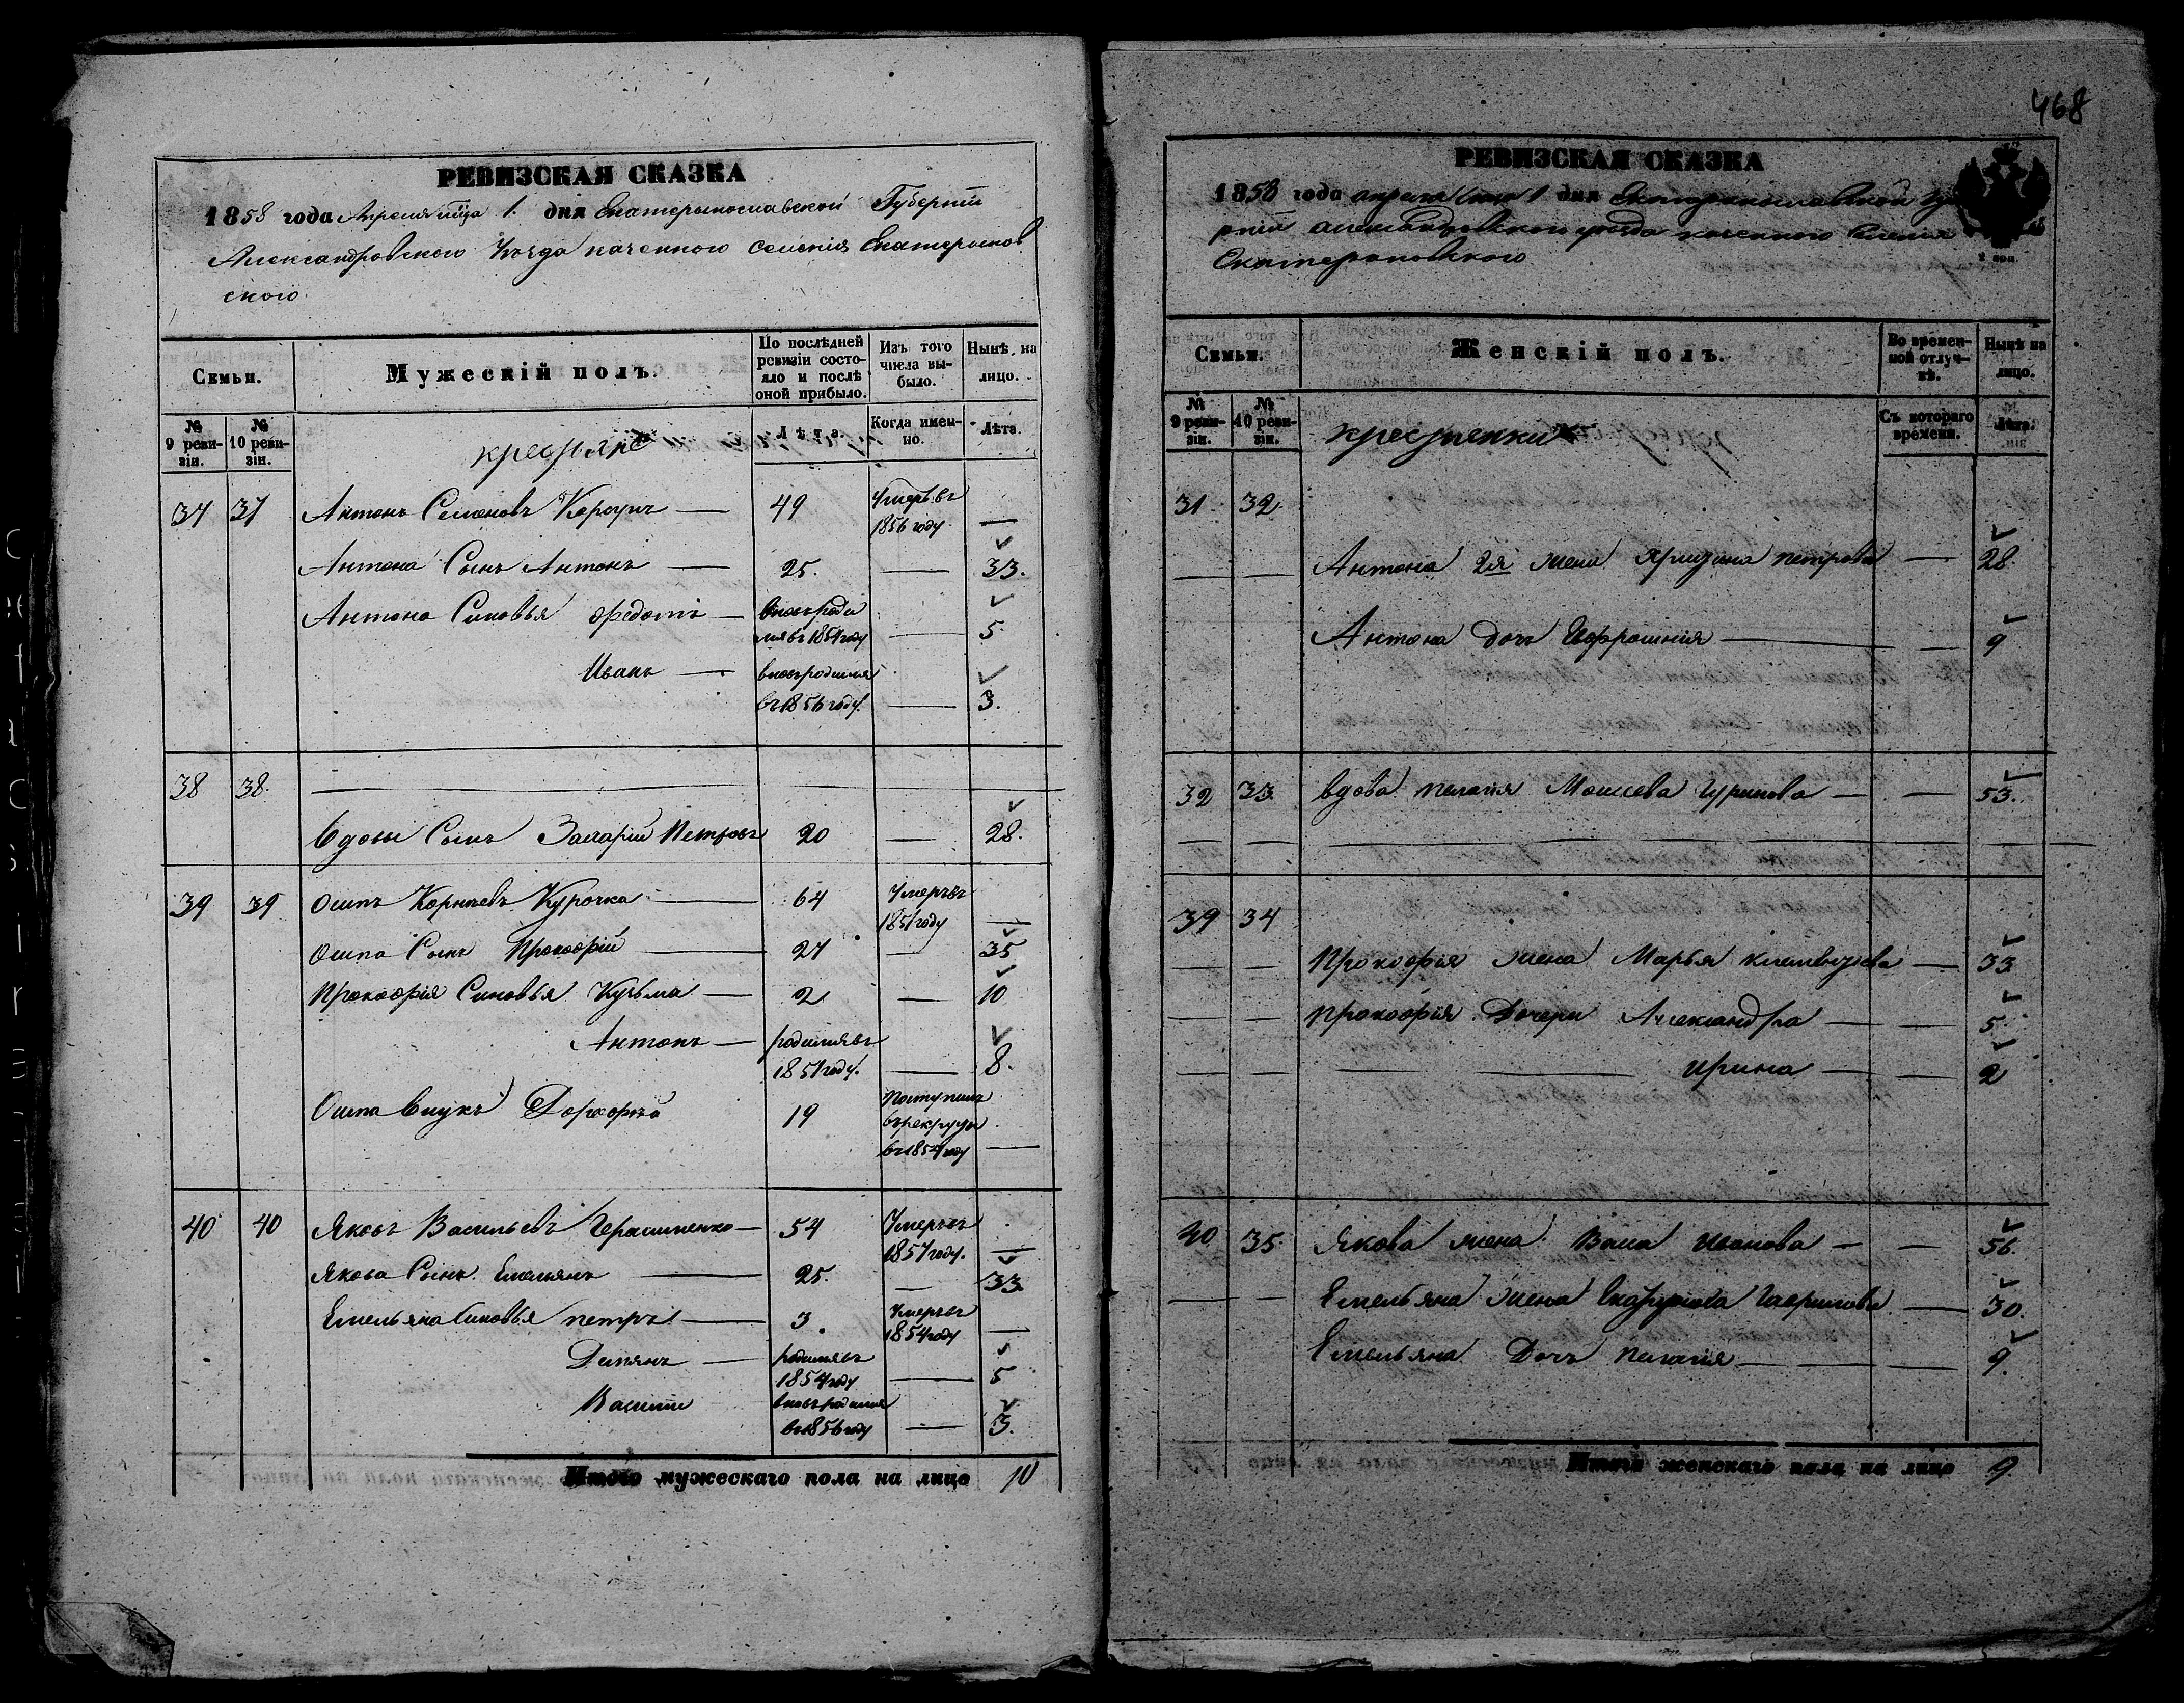 РЕВИЗСКАЯ СКАЗКА
1858 года Апреля м̃ца 1. дня Екатерынославской Губернїи
Александровского уезда казенного селенїя Екатерынов
ского
Семьи.
Мужескій полъ.
По послѣдней ревизіи состояло и послѣ оной прибыло.
Изъ того числа выбыло.
Нынѣ на лицо.
№ 9 ревизіи.
№ 10 ревизіи.
крестьяне
Лѣта.
Когда именно.
Лѣта.
37 37 Антонъ Семеновъ 49 Умеръ въ 1856 году —
Антона Сынъ Антонъ — 25. — 33.
Антона Синовья Федотъ — вновь роди лся въ 1854 году — 5.
Иванъ — вновь родился въ 1856 году. — 3.
38 38. —
Вдовы Сынъ Захарїй Петровъ 20 — 28.
39 39 Осипъ Корнѣевъ Курочка — 64 Умеръ въ 1851 году —
Осипа Сынъ Прокофїй — 27 — 35
Прокофїя Синовья Кузьма — 2 — 10
Антонъ — родился въ 1851 году. — 8.
Осипа Внукъ Дорофѣй 19 Поступилъ въ рекруты въ 1854 году —
40 40 Яковъ Васильевъ Герасименко — 54 Умеръ въ 1857 году. —
Якова Сынъ Емельянъ — 25. — 33.
Емельяна Синовья петръ — 3. Умеръ въ 1854 году —
Демянъ — родился въ 1854 году — 5
Василїи вновь родился въ 1856 году — 3.
Итого мужескаго пола на лицо 10
468
РЕВИЗСКАЯ СКАЗКА
1858 года апреля 1 дня Екатеринославской гу
рнїи александровского уезда казенного Селенїя
Екатериновского
Семьи.
Женскій полъ.
Во временной отлучкѣ.
Нынѣ на лицо.
№ 9 ревизіи.
№ 10 ревизіи.
крестьянки
Съ котораго времени.
Лѣта.
31 32
— — Антона 2я жена петрова — 28.
Антона дочь — — 9
32 33. вдова пелагїя Моисеева — — 53.
39 34
— — Прокофїя жена Марья — 33
— — Прокофїя Дочери Александра — — 5.
— — — — ирина — — 2
40 35. Якова жена Васа иванова — — 56.
— — Емельяна жена гаврилова — 30.
Емельяна Дочь пелагїя — — 9.
Итого женскаго пола на лицо 9.